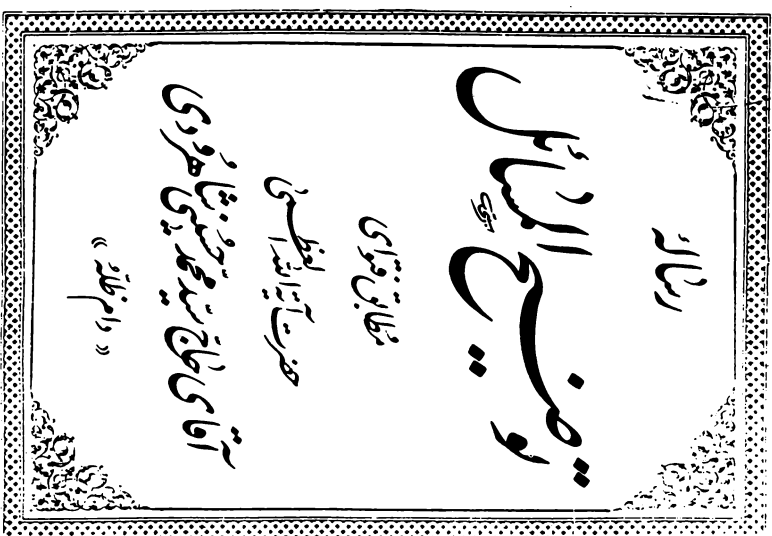 رساله
توضیح المسائل
مطابق فتوای
حضرت آیة الله العظمی
آقای حاج سید محمد حسینی شاهرودی
« دام ظله »